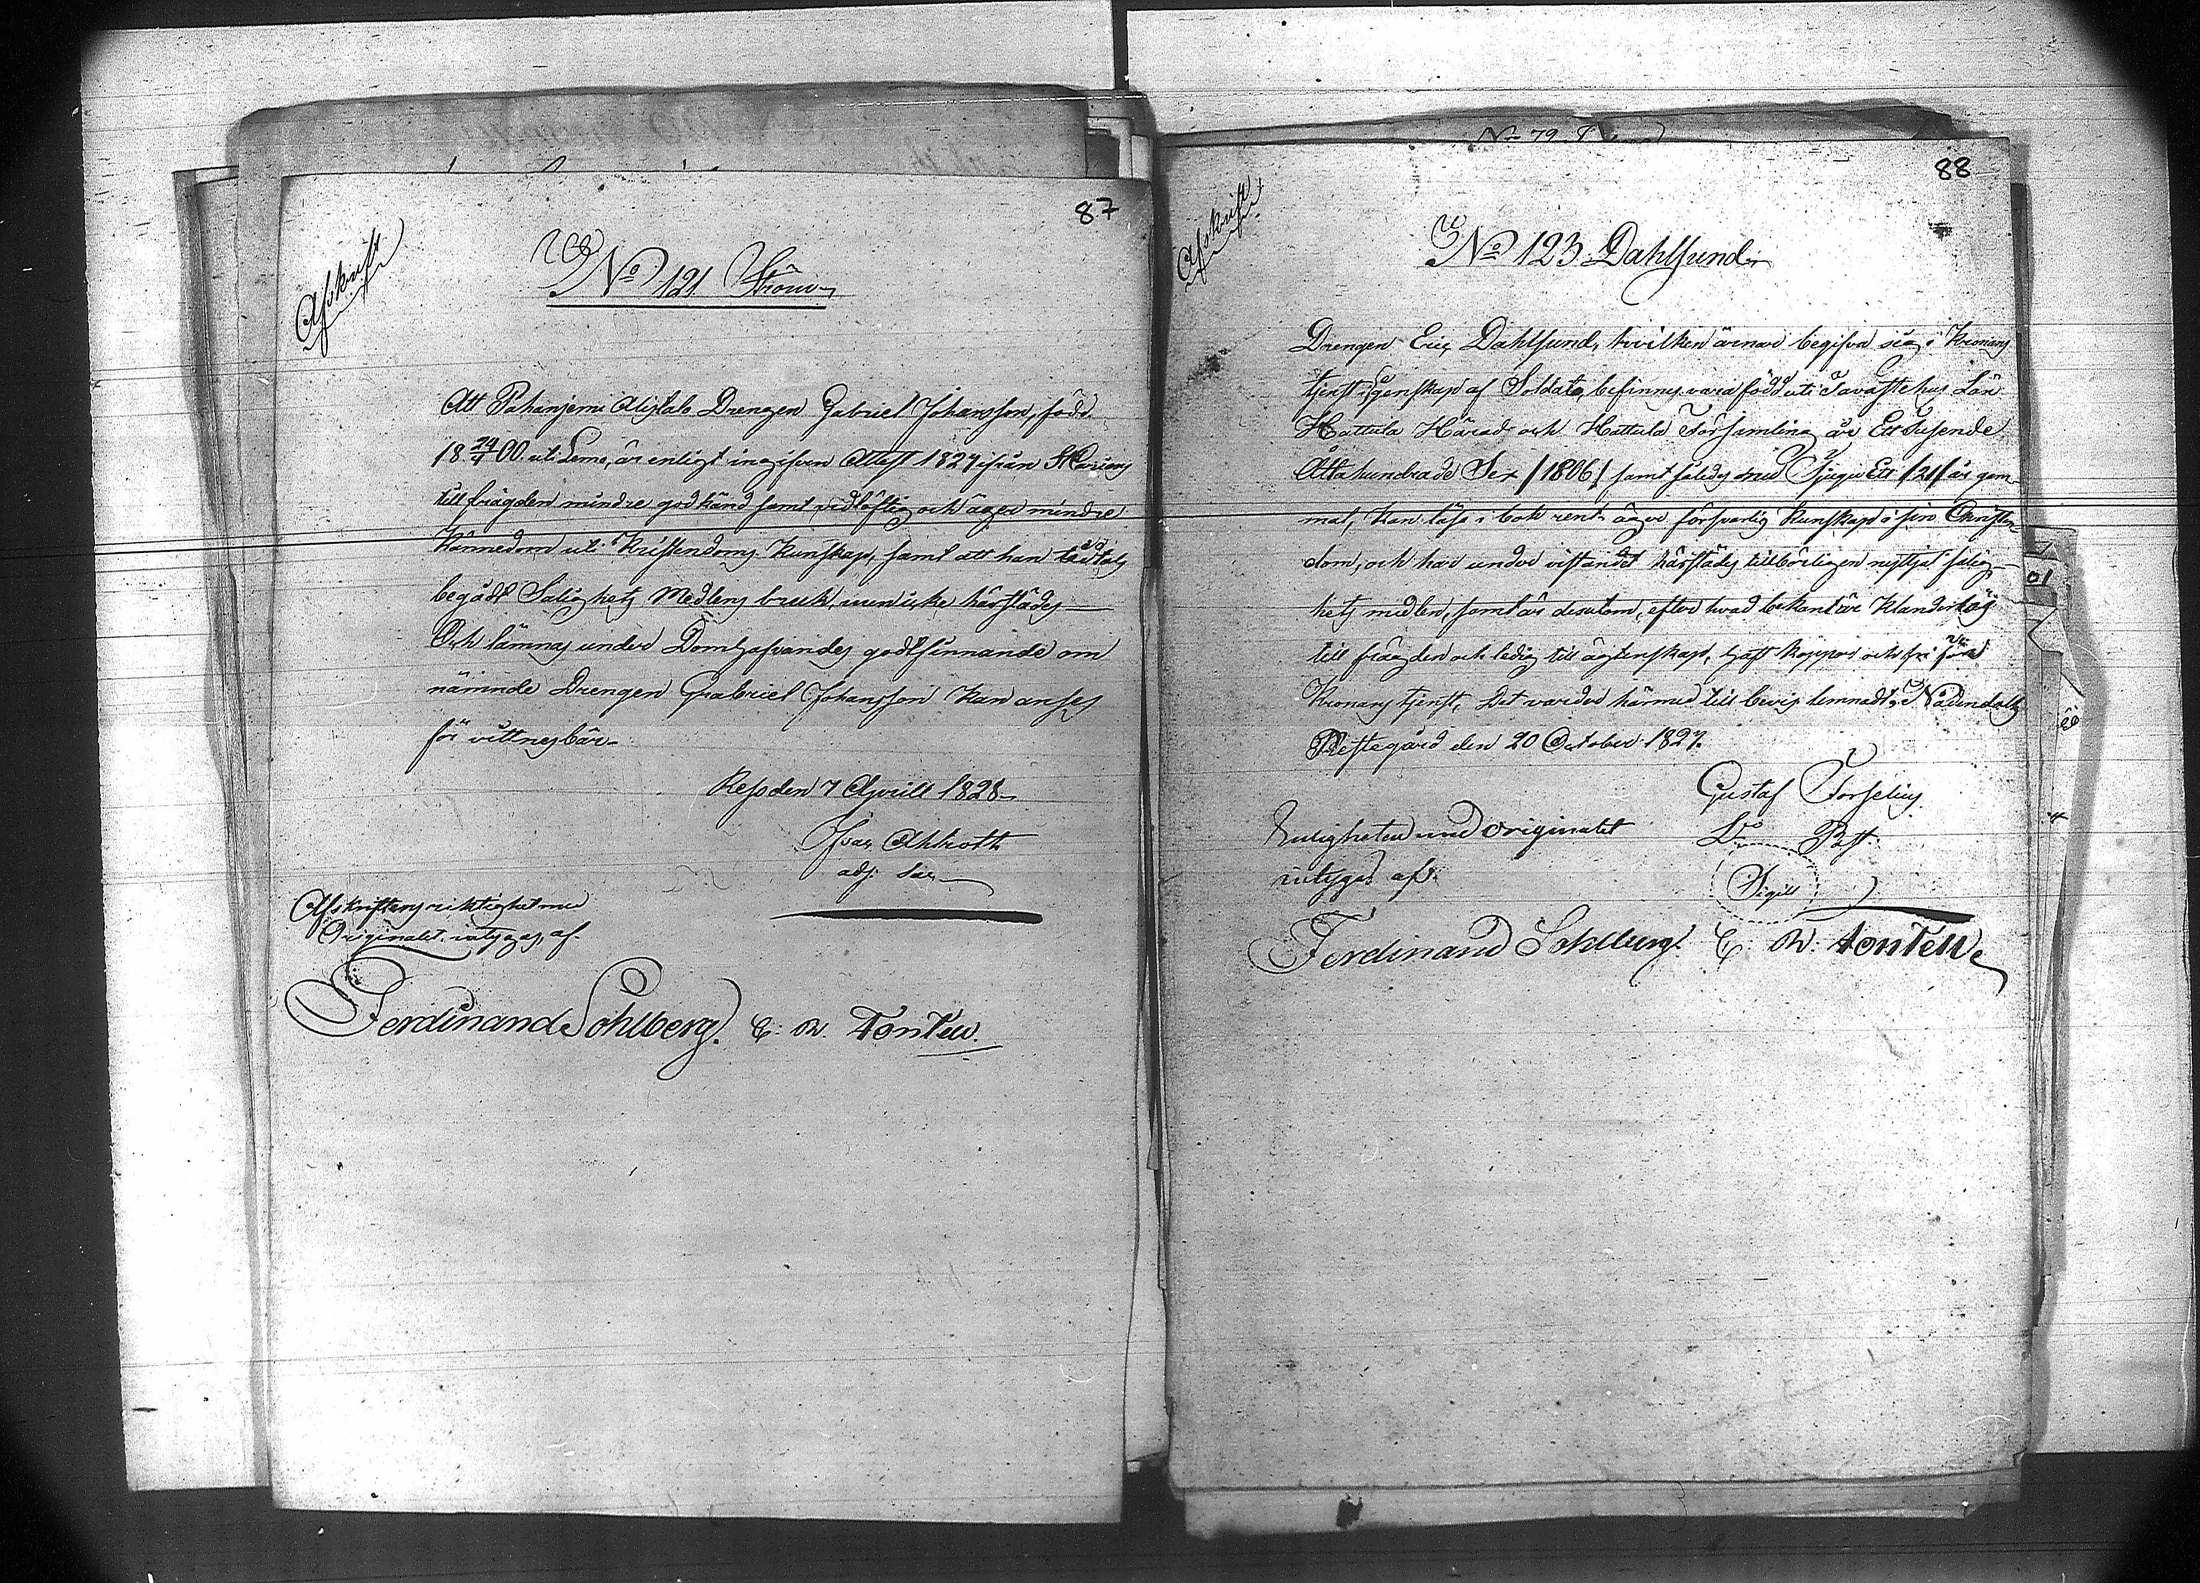 87
Afskrift
No 121 Ström
Att Pahanjemi Alistalo Drengen Gabriel Johansson, född
18 24/4 00. uti Lemo, är enligt ingifven Attest 1827 ifrån St Mariæ
till frägden mindre godkänd samt vidlöftig och äger mindre
kännedom uti Kristendoms Kunskap, samt att han
begådt Salighets Medlens bruk, men icke härstädes
Och lämnas under Domhafvandes godtfinnande om
nämnde Drengen Gabriel Johansson kan anses
för vittnesbär
Reso den 7 Aprill 1828
Isac Ahlroth
adj. Sac
Afskriftens riktighet med
Originalet intygas, af
Ferdinand Sohlberg. C: W. Fontell.
88
Afskrift
No 123 Dahlsund
Drengen Eric Dahlsund, hvilken ärnar begifva sig i Kronans
tjenst i egenskap af Soldat, befinnes vara född uti Tavastehus Län
Hattula Härad och Hattula Församling år Ett Tusende
Åtta hundrade Sex /1806/ samt således nu Tjugu Ett /21/ år gam-
mal, kan läsa i bok rent äger försvarlig Kunskap i sin Christen-
dom, och har under vistandet härstädes tillbörligen nyttjat salig-
hets medlen, samt är dessutom, efter hvad bekant är klanderlös
till frägden och ledig till ägtenskap, haft koppor och fri för
Kronans tjenst, Det varder härmed till bevis lemnadt, Nådendals
Prestegård den 20 October 1827.
Gustaf Forselius
Past.
Sigill
Enligheten med originalet
intygas af:
Ferdinand Sohlberg. C: W. Fontell